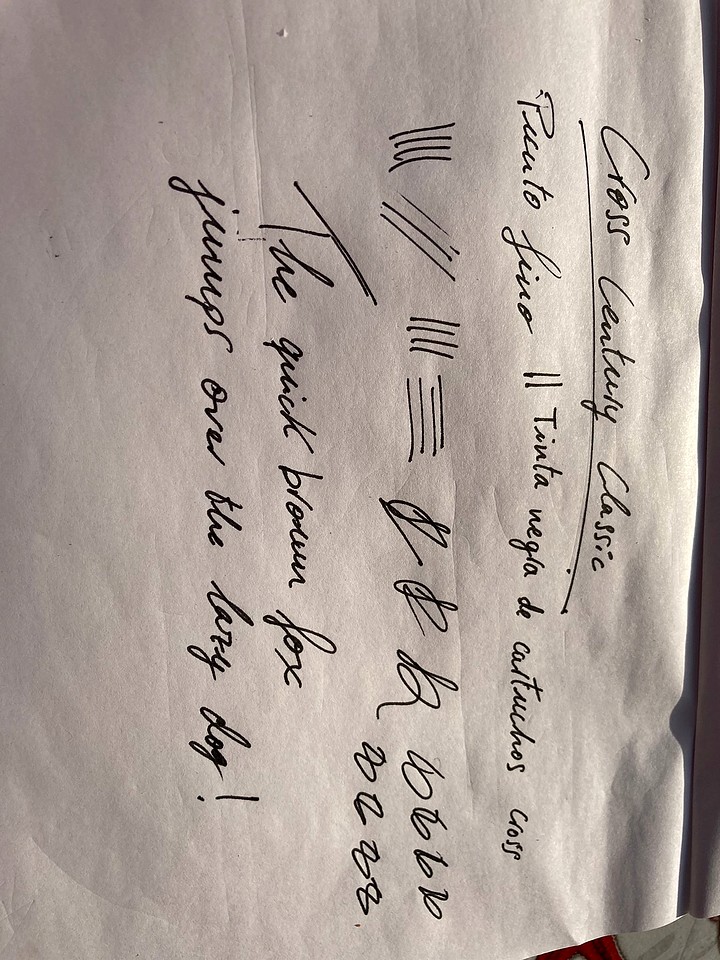 Cross Century Classic
Punto fino || Tinta negra de cartuchos cross
The quick brown fox
jumps over the lazy dog!